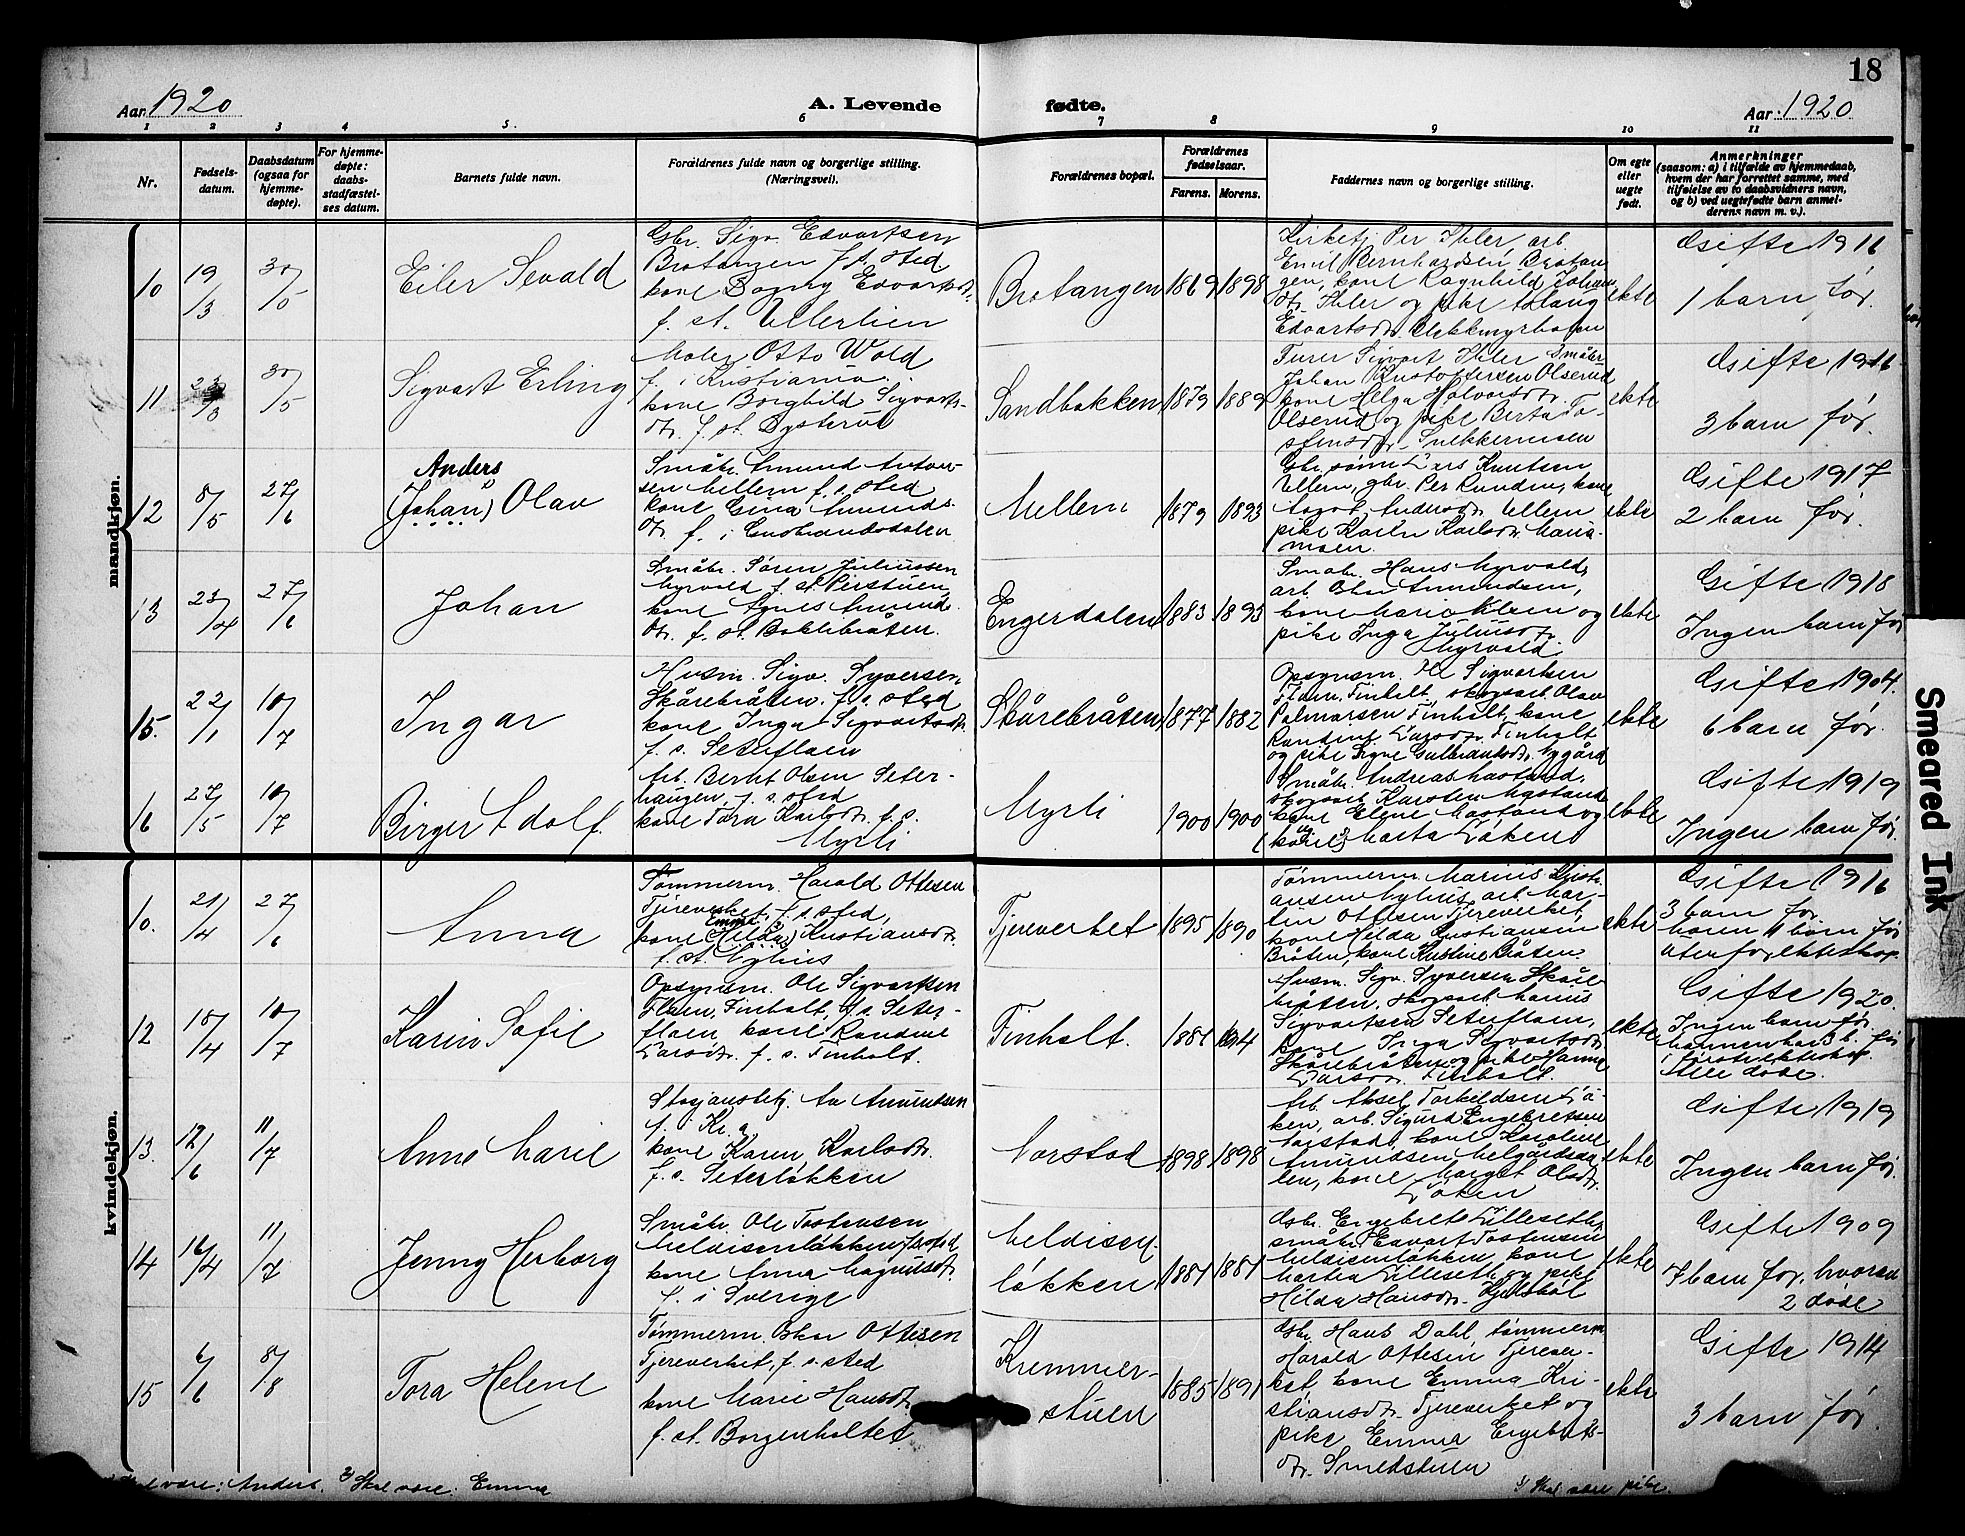 18
Aar 1920
A. Levende fødte.
Aar 1920
1 2 3 4 5. 6 7 8 9 10 11
Nr.
Fødsels-
datum.
Daabsdatum
(ogsaa for
hjemme-
døpte).
For hjemme-
døpte:
daabs-
stadfæstel-
ses datum.
Barnets fulde navn.
Forældrenes fulde navn og borgerlige stilling.
(Næringsvei).
Forældrenes bopæl.
Forældrenes
fødselsaar.
Farens. Morens.
Faddernes navn og borgerlige stilling.
Om egte
eller
uegte
født.
Anmerkninger
(saasom: a) i tilfælde av hjemmedaab,
hvem der har forrettet samme, med
tilføielse av to daabsvidners navn,
og b) ved uegtefødte barn anmel-
derens navn m. v.).
mandkjøn.
10
19/3
30/5
Eiler Sevald
Gbr. Sigv. Edvartsen
Brotangen f. s. sted
kone Dagny Edvartsdtr.
f. st. Ullerlien
Brotangen
1869
1898
Kirketj. Per Ihler, arb.
Emil Bernhardsen Brotan-
gen, kone Ragnhild Johans
dtr. Ihler og pike Aslaug
Edvartsdtr.
ekte
Gifte 1916
1 barn før.
11
30/5
Sigvart Erling
Maler Otto Wold
f. i Kristiania
kone Borghild Sigvarts-
dtr. f. st. Dysterud
Sandbakken
1879
1889
Sigvart Ihler Småbr.
Johan Kristoffersen Olserud
kone Helga Halvorsdtr.
Olserud og pike Berta To-
stensdtr. Snekkernesen
ekte
Gifte 1916
3 barn før.
12
8/5
27/6
Anders
(Johan) Olav
Småbr. Amund Anton-
sen Mellem f. s. sted
kone Gina Amunds-
dtr. f. i Gudbrandsdalen
Mellem
1879
1893
Gbr. sønn Lars Knutsen
Ullern, gbr. Per Runden, kone
Andersdtr. Ullern
pike Karen Karlsdtr. Maria-
moen.
ekte
Gifte 1917
2 barn før.
13
23/4
27/6
Johan
Småbr. Søren Juliussen
Myrvold f. st. Perstuen
kone Agnes Amunds-
dtr. f. st. Baklibråten.
Engerdalen
1883
1893
Småbr. Hans Myrvold,
arb. Olav Amundsen,
kone Maria Olsen og
pike Inga Juliusdtr.
Myrvold
ekte
Gifte 1918
Ingen barn før
15.
22/1
10/7
Ingar
Husm. Sigv. Syversen
Skårebråten. f. s. sted
kone Inga Sigvartsdtr.
f. s. Seterfloen
Skårebråten
1877
1882
Opsynsm. Ole Sigvartsen
Floen, Finholt, skogsarb. Olav
Palmarsen Finholt, kone
Randine Larsdtr. Finholt
og pike Signe Gulbrandsdtr. Nygård
ekte
Gifte 1904.
6 barn før.
16
27/5
10/7
Birger Adolf.
Arb. Bernt Olsen Seter-
haugen, f. s. sted
kone Tora Karlsdtr. f. s.
Myrli
Myrli
1900
1900
Småbr. Andreas Mastand,
skogsarb. Karsten Mastand
kone Elene Mastand og
(kone) Marta Løken
ekte
Gifte 1919
Ingen barn før.
kvindekjøn.
10.
21/4
27/6
Anna
Tømmerm. Harald Ottesen
Tjereverket, f. s. sted,
Emma
kone (Hilda) Kristiansdtr.
f. st. Nyhus
Tjereverket
1895
1890
Tømmerm. Marius Kristi-
ansen Nyhus, arb. Mar-
tin Ottesen Tjereverket,
kone Hilda Kristiansen
Bråten, kone Kristine Bråten.
ekte
Gifte 1916
3 barn før.
Moren 1 barn før
utenfor ekteskap.
12
10/4
10/7
Karin Sofie
Opsynsm. Ole Sigvartsen
Floen, Finholt, f. s. Seter-
floen, kone Randine
Larsdtr. f. s. Finholt.
Finholt.
1881
Husm. Sigv. Syversen Skåre-
bråten, skogsarb. Marius
Sigvartsen Seterfloen,
kone Inga Sigvartsdtr.
Skårebråten og pike Hanna
Larsdtr. Finholt.
ekte
Gifte 1920.
Ingen barn før.
Mannen har 3 b. før
i første ekteskap
alle døde.
13.
12/6
11/7
Anne Marie
Stasjonsbetj. Av Amundsen
f. i Kr.a
kone Karen Karlsdtr.
f. s. Seterløkken
Norstad
1898
1898
Arb. Aksel Torkildsen Lø-
ken, arb. Sigurd Engebretsen
Norstad, kone Karoline
Amundsen Melgårdsda-
len, kone Margit Olsdtr.
Løken
ekte
Gifte 1919
Ingen barn før.
14
16/4
11/7
Jenny Herborg
Småbr. Ole Tostensen
Meldisenløkken, f. s. sted
kone Anna Magnusdtr.
f. i Sverige
Meldisen-
løkken
1881
1881
Gbr. Engebret Lilleseth,
småbr. Edvart Tostensen
Meldisenløkken, kone
Martea Lilleseth og pike
Hilda Hansdtr. Kjelsbøl
ekte
Gifte 1909
7 barn før, hvorav
2 døde
15
6/6
8/8
Tora Helene
Tømmerm. Oskar Ottesen
Tjereverket, f. s. sted
kone Marie Hansdtr.
f. st. Borgenholtet
Kremmer-
stuen
1885
1891
Gbr. Hans Dahl, tømmerm.
Harald Ottesen Tjerever-
ket, kone Emma Kri-
stiansdtr. Tjereverket og
pike Emma Engebrets-
dtr. Smedstuen
ekte
Gifte 1914
3 barn før.
Skal være: Anders. 2) Skal være: Emma
1) Skal være pike.
Smeared Ink